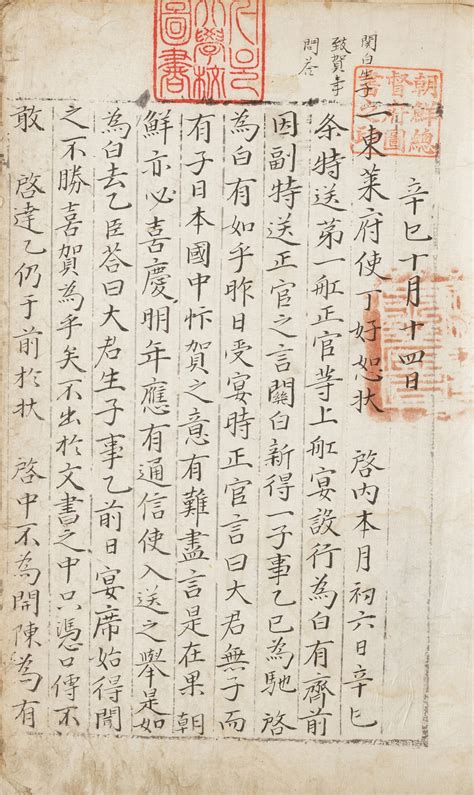 関白生子
致賀事
問荅
朝鮮總
督府圖
書之印
서울
大學校
圖書
辛巳十月十四日
一東萊府使丁好恕狀 啓內本月初六日辛巳
条特送第一舡正官等上舡宴設行為白有齊前
因副特送正官之言關白新得一子事乙已為馳啓
為白有如乎昨日受宴時正官言曰大君無子而
有子日本國中忭賀之意有難盡言是在果朝
鮮亦必喜慶明年應有通信使入送之舉是如
為白去乙臣荅曰大君生子事乙前日宴席始得聞
之不勝喜賀為乎矣不出於文書之中只憑口傳不
敢 啓達乙仍于前於狀 啓中不為開陳為有